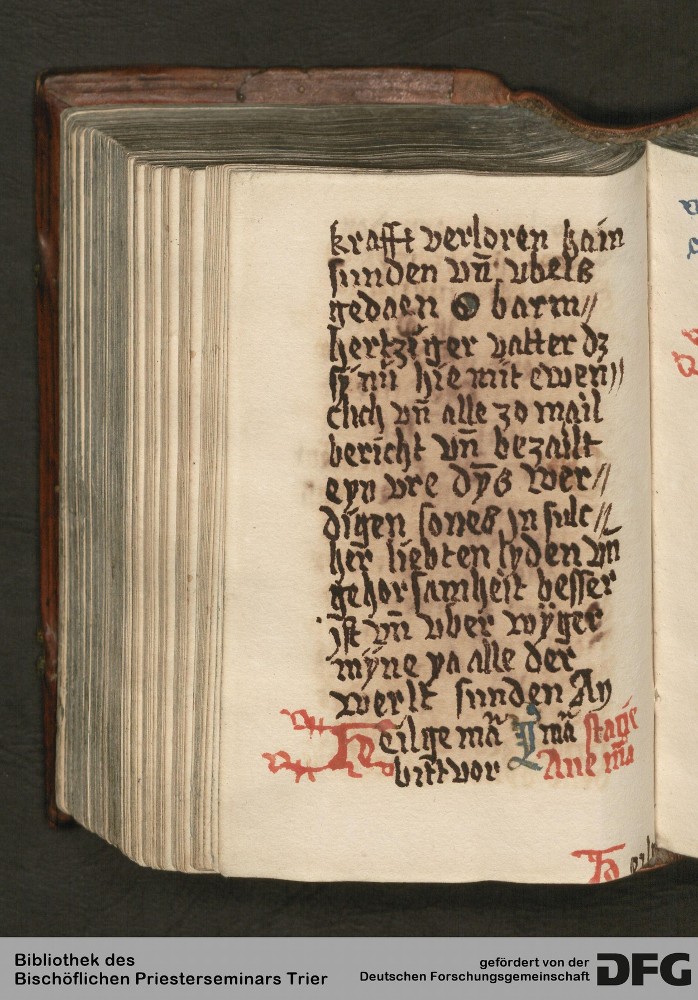 krafft verloren hain
sunden vn̄ vbels
gedaen O barm//
hertziger vatter dz
sy nū hie mit ewen//
clich vn̄ alle zo mail
bericht vn̄ bezailt
eyn vre dȳs wer//
digen sones jn sulc//
her liebten lyden vn̄
gehorsamheit besser
jst vn̄ vber wÿger
mÿne ya alle der
werlt sunden Ay
Heilge mā
bitt vor
Ave m̄a
Bibliothek des
Bischöflichen Priesterseminars Trier
gefördert von der
Deutschen Forschungsgemeinschaft
DFG